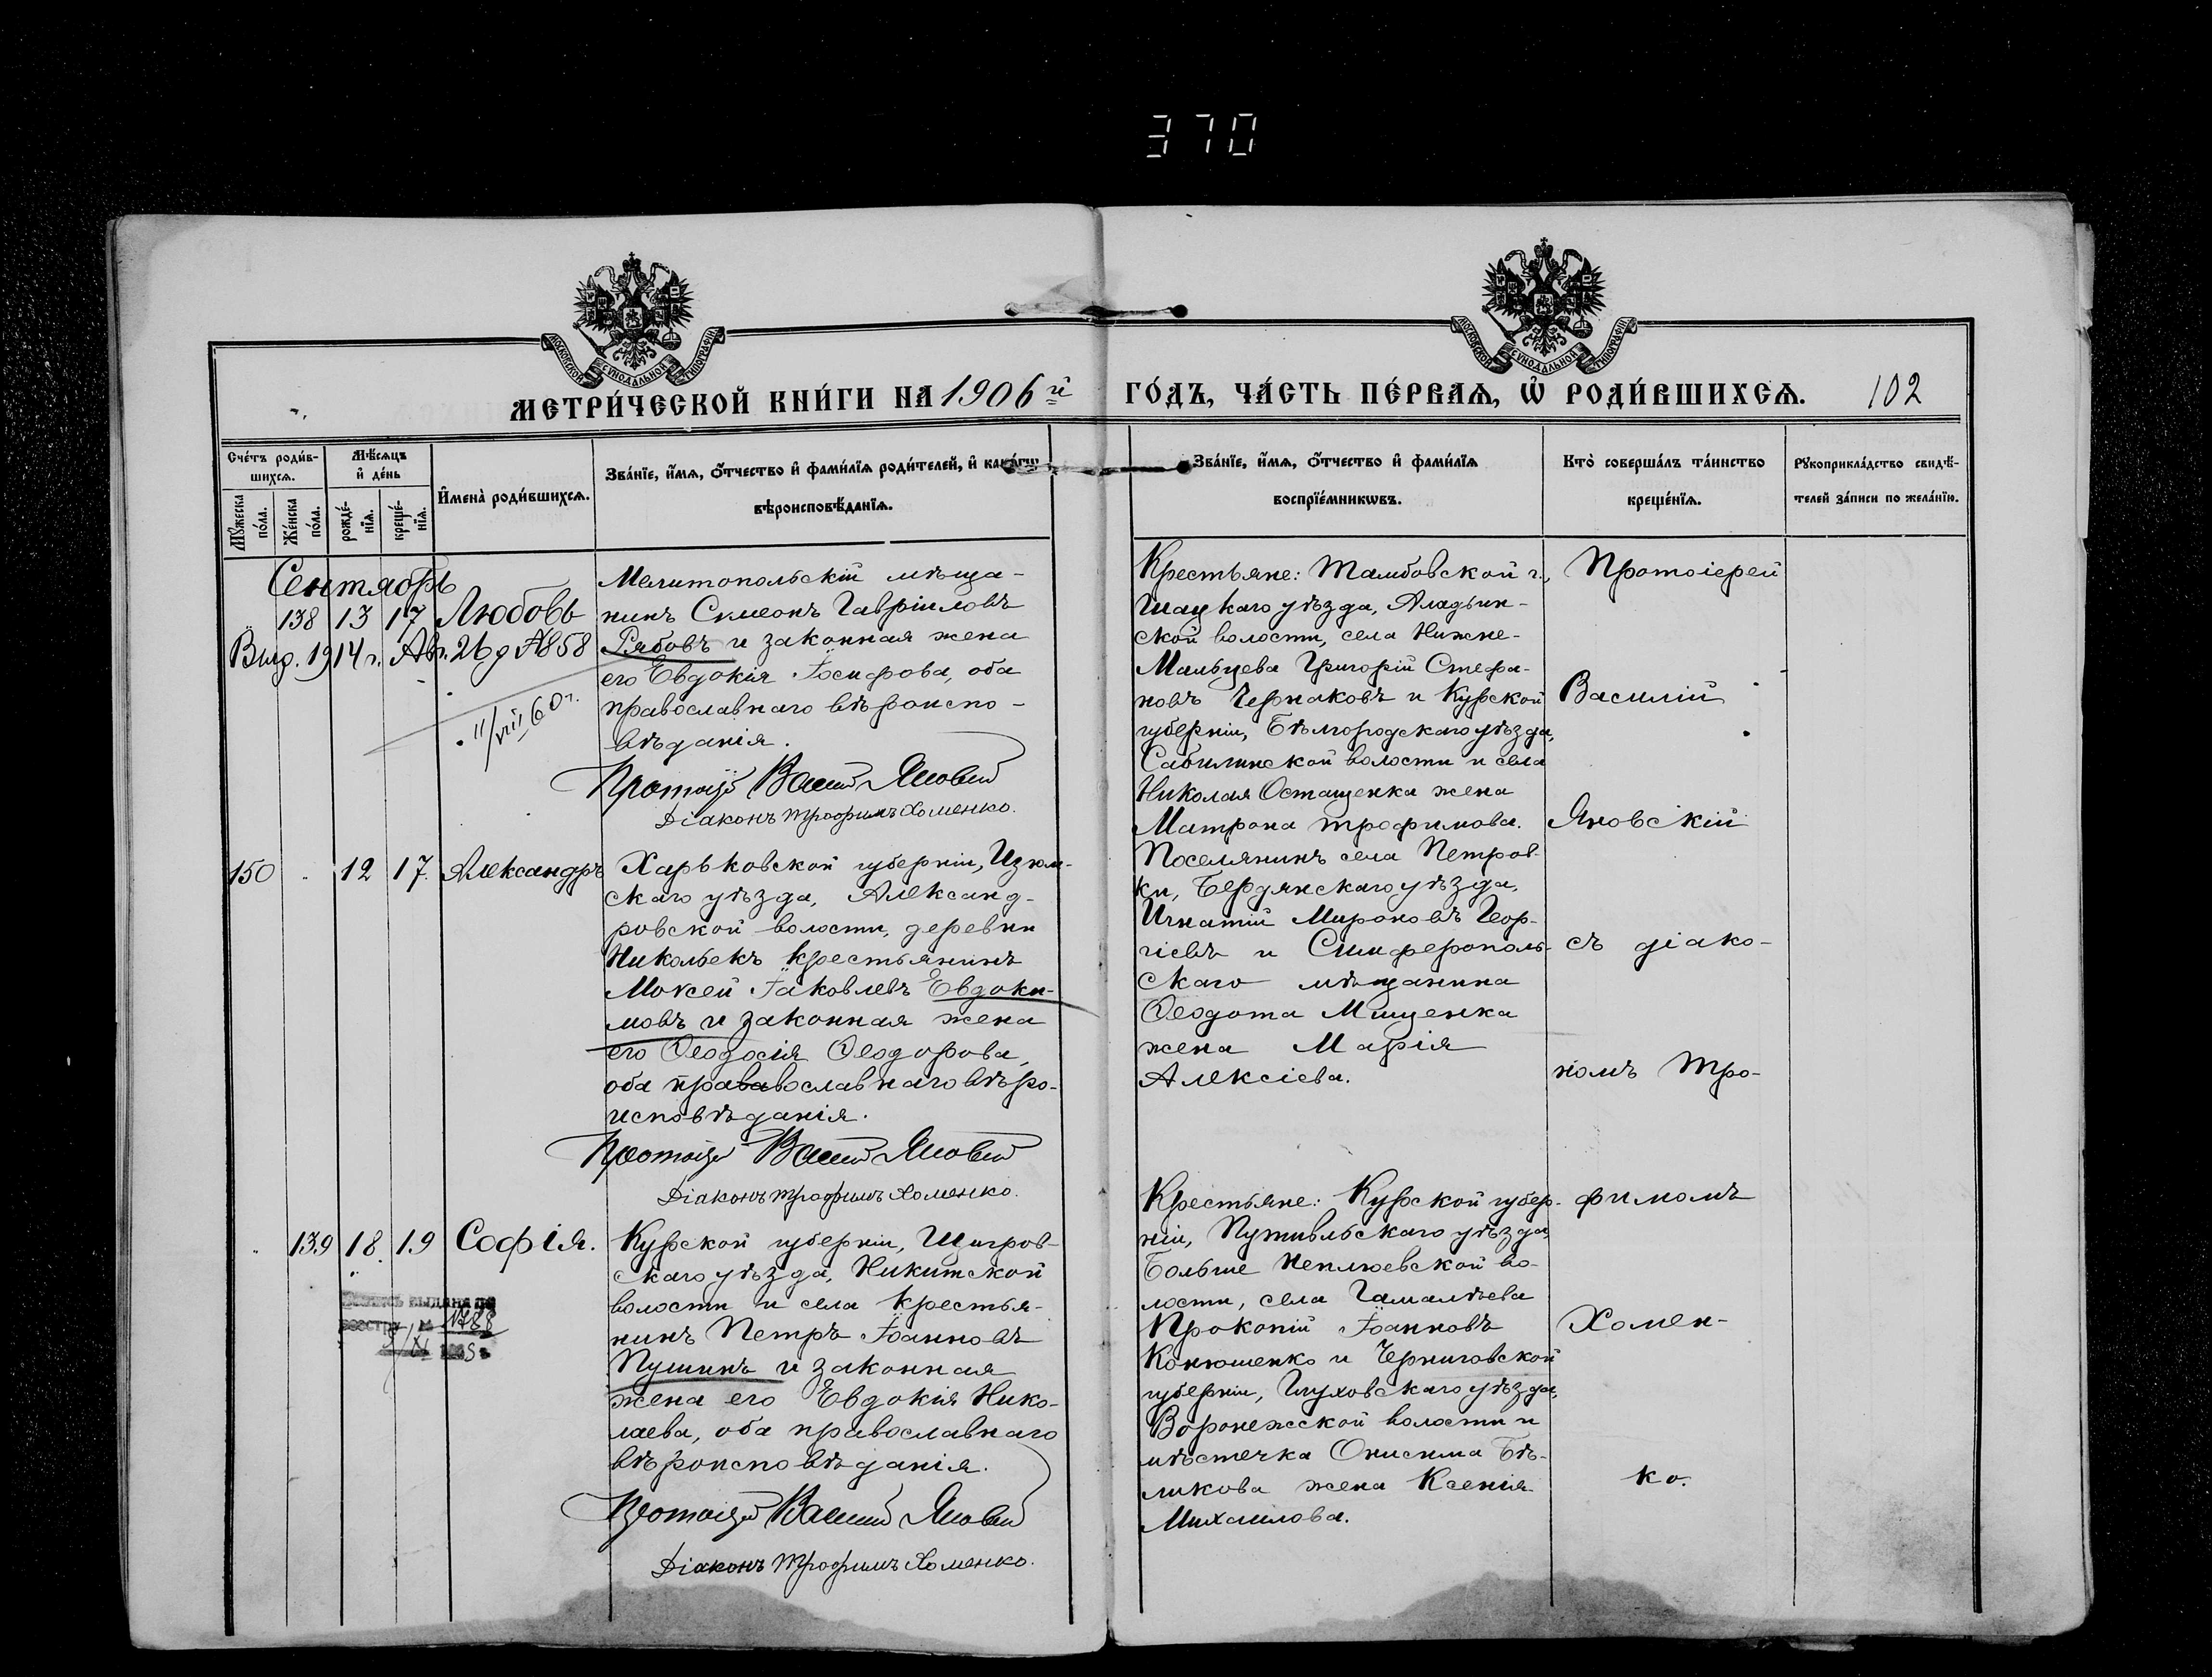 370
МОСКОВСКОЙ СУНОДАЛЬНОЙ ТИПОГРАФІИ
МОСКОВСКОЙ СУНОДАЛЬНОЙ ТИПОГРАФІИ
МЕТРИ́ЧЕСКОЙ КНИ́ГИ НА 1906й ГО́ДЪ, ЧА́СТЬ ПЕ́РВАѦ, Ѡ҆ РОДИ́ВШИХСѦ. 102
Сче́тъ роди́в-
шихсѧ.
Мѣ́сяцъ
и҆ де́нь
Мꙋ́жеска по́ла.
Же́нска по́ла.
рожде́-
нїѧ.
креще́-
нїѧ.
И҆мена̀ роди́вшихсѧ.
Зва́нїе, и҆́мѧ, ѻ҆́тчество и҆ фами́лїѧ роди́телей, и҆ како́гѡ
вѣроисповѣ́данїѧ.
Зва́нїе, и҆́мѧ, ѻ҆́тчество и҆ фами́лїѧ
воспрїе́мникѡвъ.
Кто̀ соверша́лъ та́инство
креще́нїѧ.
Рꙋкоприкла́дство свидѣ́-
телей за́писи по жела́нїю.
Сентябрь
138 13 17 Любовь
Выд. 1914 г. Авг. 26 д № 858
11/VII 60 г.
Мелитопольскій мѣща-
нинъ Симеонъ Гавріиловъ
Рябовъ и законная жена
его Евдокія Іосифова, оба
православнаго вѣроиспо-
вѣданія.
Протоіер Васил Яновскій
Діаконъ Трофимъ Хоменко.
Крестьяне: Тамбовской г.,
Шацкаго уѣзда, Аладьин-
ской волости, села Нижне-
Мальцева Григорій Стефа-
новъ Черпаковъ и Курской
губерніи, Бѣлгородскаго уѣзда,
Сабынинской волости и села
Николая Остащенка жена
Матрона Трофимова.
150 12 17. Александръ
Харьковской губерніи, Изюм-
скаго уѣзда, Александ-
ровской волости, деревни
Никольекъ крестьянинъ
Моѵсей Іаковлевъ Евдоки-
мовъ и законная жена
его Ѳеодосія Ѳеодорова,
оба прававославнаго вѣро-
исповѣданія.
Протоіер Васил Яновскій
Діаконъ Трофимъ Хоменко.
Поселянинъ села Петров-
ки, Бердянскаго уѣзда,
Игнатій Мироновъ Геор-
гіевъ и Симферополь-
скаго мѣщанина
Ѳеодота Мищенка
жена Марія
Алексіева.
139 18 19 Софія.
Запись выдана по
реестру № 1788
Курской губерніи, Щигров-
скаго уѣзда, Никитской
волости и села крестья-
нинъ Петръ Іоанновъ
Пушинъ и законная
жена его Евдокія Нико-
лаева, оба православнаго
вѣроисповѣданія.
Протоіер Васил Яновскій
Діаконъ Трофимъ Хоменко.
Крестьяне: Курской губер-
ніи, Путивльскаго уѣзда,
Больше Неплюевской во-
лости, села Гамалѣева
Прокопій Іоанновъ
Конюшенко и Черниговской
губерніи, Глуховскаго уѣзда,
Воронежской волости и
мѣстечка Онисима Бѣ-
ликова жена Ксенія
Михаилова.
Протоіерей
Василій
Яновскій
съ діако-
номъ Тро-
фимомъ
Хомен-
ко.